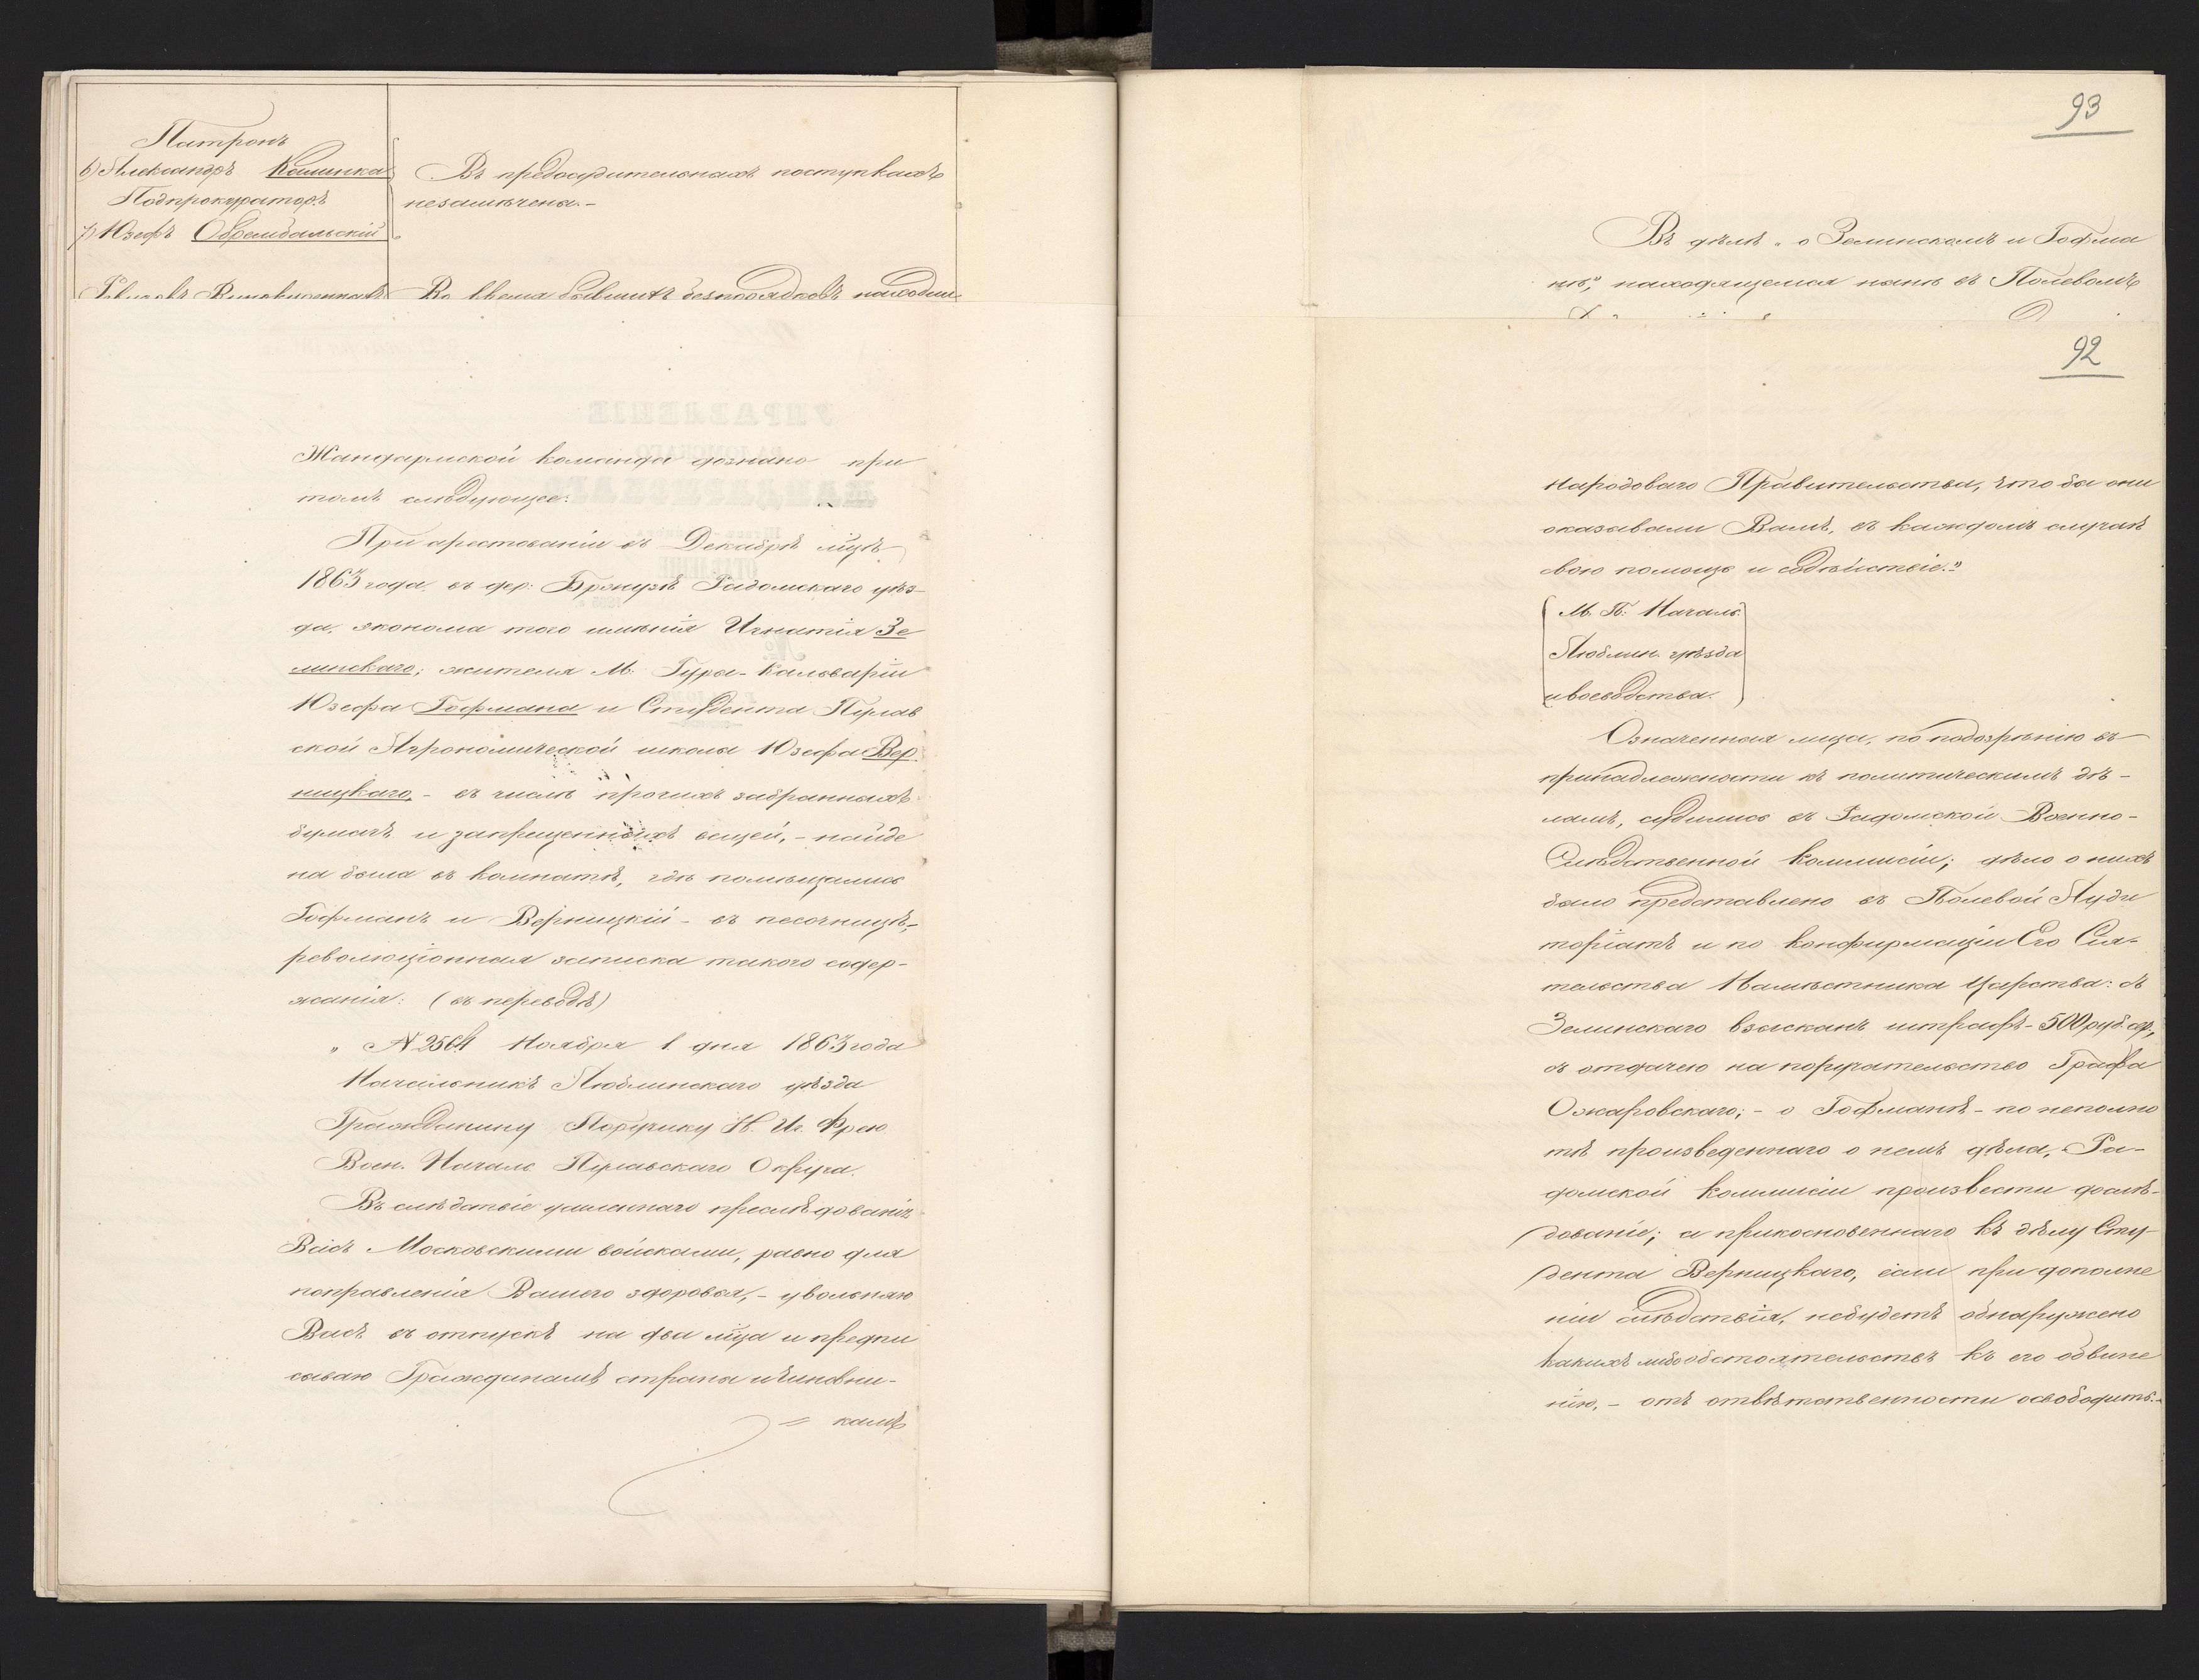 Патронъ
6) Александръ Калинка
Подпрокураторъ
7) Юзефъ Обремbальскій
Въ предосудительныхъ поступкахъ
незамѣчены.-
Во время бывшихъ безпорядковъ находил
Жандармской команда дознано при
томъ слѣдующее:
При арестованіи въ Декабрѣ мцѣ
1863 года. въ дер: Брэнузѣ Радомскаго уѣз-
да, эконома того имѣнія Игнатія Зе
линскаго; жителя М. Гура-Кальваріи
Юзефа Гофмана и Студента Пулав
ской Агрономической школы Юзефа Вер
ницкаго, - въ числѣ прочихъ забранныхъ
бумагъ и запрещенныхъ вещей, - найде
на была въ комнатѣ, гдѣ помѣщались
Гофманъ и Верницкій - въ песочницѣ,-
революціонная записка такого содер-
жанія: (въ переводѣ)
„ N 2564 Ноября 1 дня 1863 года
Начальникъ Люблинскаго уѣзда
Гражданину Поручику Н. Иг. Фрею
Воен. Началь. Пулавскаго Округа.
Въ слѣдствіе усиленнаго преслѣдованія
Васъ Московскими войсками, равно для
поправленія Вашего здоровья, - увольняю
Васъ въ отпускъ на два мца и предпи
сываю Гражданамъ страны и Чиновни-
= камъ
93
Въ дѣлѣ „о Зелинскомъ и Гофма
нѣ", находящемся нынѣ въ Полевомъ
92
Народоваго Правительства, что бы они
оказывали Вамъ, въ каждомъ случаѣ
свою помощь и содѣйствіе."
М. П: Началь.
Люблин. уѣзда
и воеводства.
Означенныя лица, по подозрѣнію въ
принадлежности къ политическимъ дѣ-
ламъ, судились въ Радомской Военно-
Слѣдственной Коммисіи; дѣло о нихъ
было представлено въ Полевой Ауди
торіатъ и по конфирмаціи Его Сія-
тельства Намѣстника Царства: съ
Зелинскаго взысканъ штрафъ - 500 руб. ср,
съ отдачею на поручательство Графа
Ожаровскаго; - о Гофманѣ - по неполно
тѣ произведеннаго о немъ дѣла, Ра-
домской Коммисіи произвести дослѣ-
дованіе; а прикосновеннаго къ дѣлу Сту-
дента Верницкаго, если при дополне
ніи слѣдствія, небудетъ обнаружено
какихъ либо обстоятельствъ къ его обвине
нію, - отъ отвѣтственности освободить.-